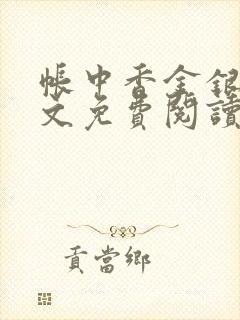 帳中香金銀
文免費閱讀
貢當鄉